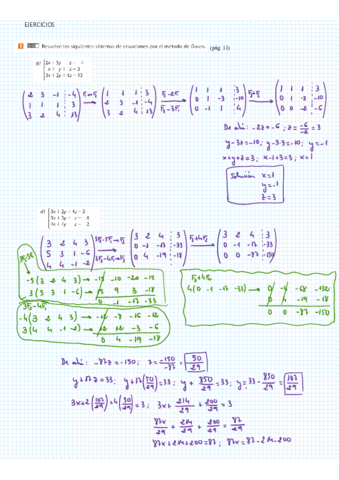 EJERCICIOS
1 Resuelve los siguientes sistemas de ecuaciones por el método de Gauss. (pág. 11)
2x + 3y - z = -4
x + y + z = 3
3x + 2y + 4z = 13
2 3 -1 -4
1 1 1 3
3 2 4 13
1 1 1 3
2 3 -1 -4
3 2 4 13
1 1 1 3
0 1 -3 -10
0 -1 1 4
1 1 1 3
0 1 -3 -10
0 0 -2 -6
De ahí: -2z = -6; z = -6/-2 = 3
y - 3z = -10; y - 3·3 = -10; y = -1
x + y + z = 3; x - 1 + 3 = 3; x = 1
Solución x = 1
y = -1
z = 3
d) 3x + 2y + 4z = 3
5x + 3y + z = -6
4x + 4y - z = -2
3 2 4 3
5 3 1 -6
4 4 -1 -2
3F2-5F1→F2
3F3-4F1→F3
3 2 4 3
0 -1 -17 -33
0 4 -19 -18
F3+4F2
3 2 4 3
0 -1 -17 -33
0 0 -87 -150
-5(3 2 4 3) → -15 -10 -20 -15
3(5 3 1 -6) → 15 9 3 -18
0 -1 -17 -33
-4(3 2 4 3) → -12 -8 -16 -12
3(4 4 -1 -2) → 12 12 -3 -6
0 4 -19 -18
F3+4F2
4(0 -1 -17 -33) → 0 -4 -68 -132
0 4 -19 -18
0 0 -87 -150
De ahí: -87z = -150; z = -150/-87 = 50/29
y + 17z = 33; y + 17(50/29) = 33; y + 850/29 = 33; y = 33 - 850/29 = 107/29
3x + 2(107/29) + 4(50/29) = 3; 3x + 214/29 + 200/29 = 3
87x/29 + 214/29 + 200/29 = 87/29
87x + 214 + 200 = 87; 87x = 87 - 214 - 200